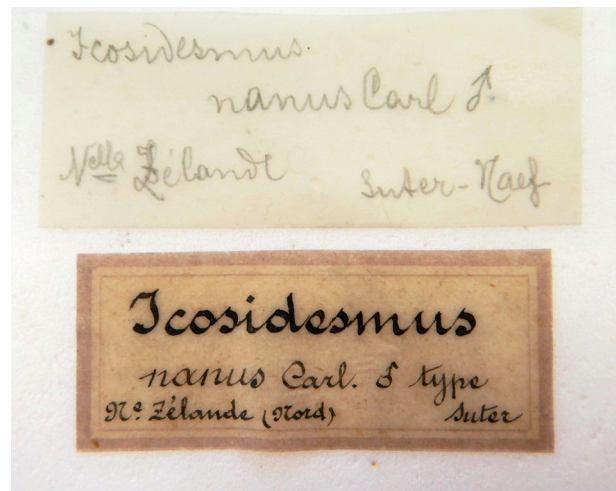 Icosidesmus.
nanus Carl ♂
Nelle Zélande Suter-Naef
Icosidesmus
nanus Carl. ♂ type
Ne Zélande (Nord) Suter